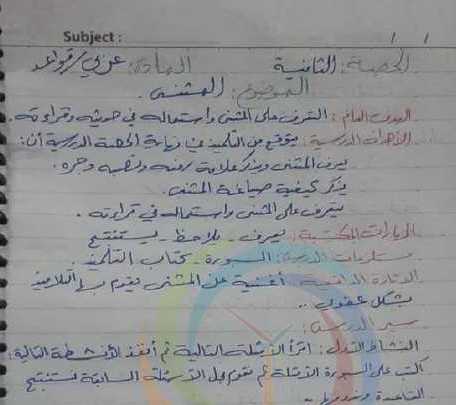 Subject :
الحصة: الثانية المادة: عربي / قواعد
الموضوع: المثنى
الهدف العام: التعرف على المثنى واستعماله في حديثه وقراءته.
الأهداف الدرسية: يتوقع من التلميذ في نهاية الحصة الدرسية أن:
يعرف المثنى ويذكر علامة رفعه ونصبه وجره.
يذكر كيفية صياغة المثنى.
يتعرف على المثنى واستعماله في قراءته.
المهارات المكتسبة: يعرف - يلاحظ - يستنتج
مستلزمات الدرس: السبورة - كتاب التلميذ.
أغنية عن المثنى يقوم بها التلاميذ
بشكل عفوي ..
سير الدرس:
النشاط الأول: اقرأ الأمثلة التالية ثم أنفذ الأنشطة التالية:
أكتب على السبورة الأمثلة ثم نقوم بحل الأسئلة السابقة لنستنتج
القاعدة